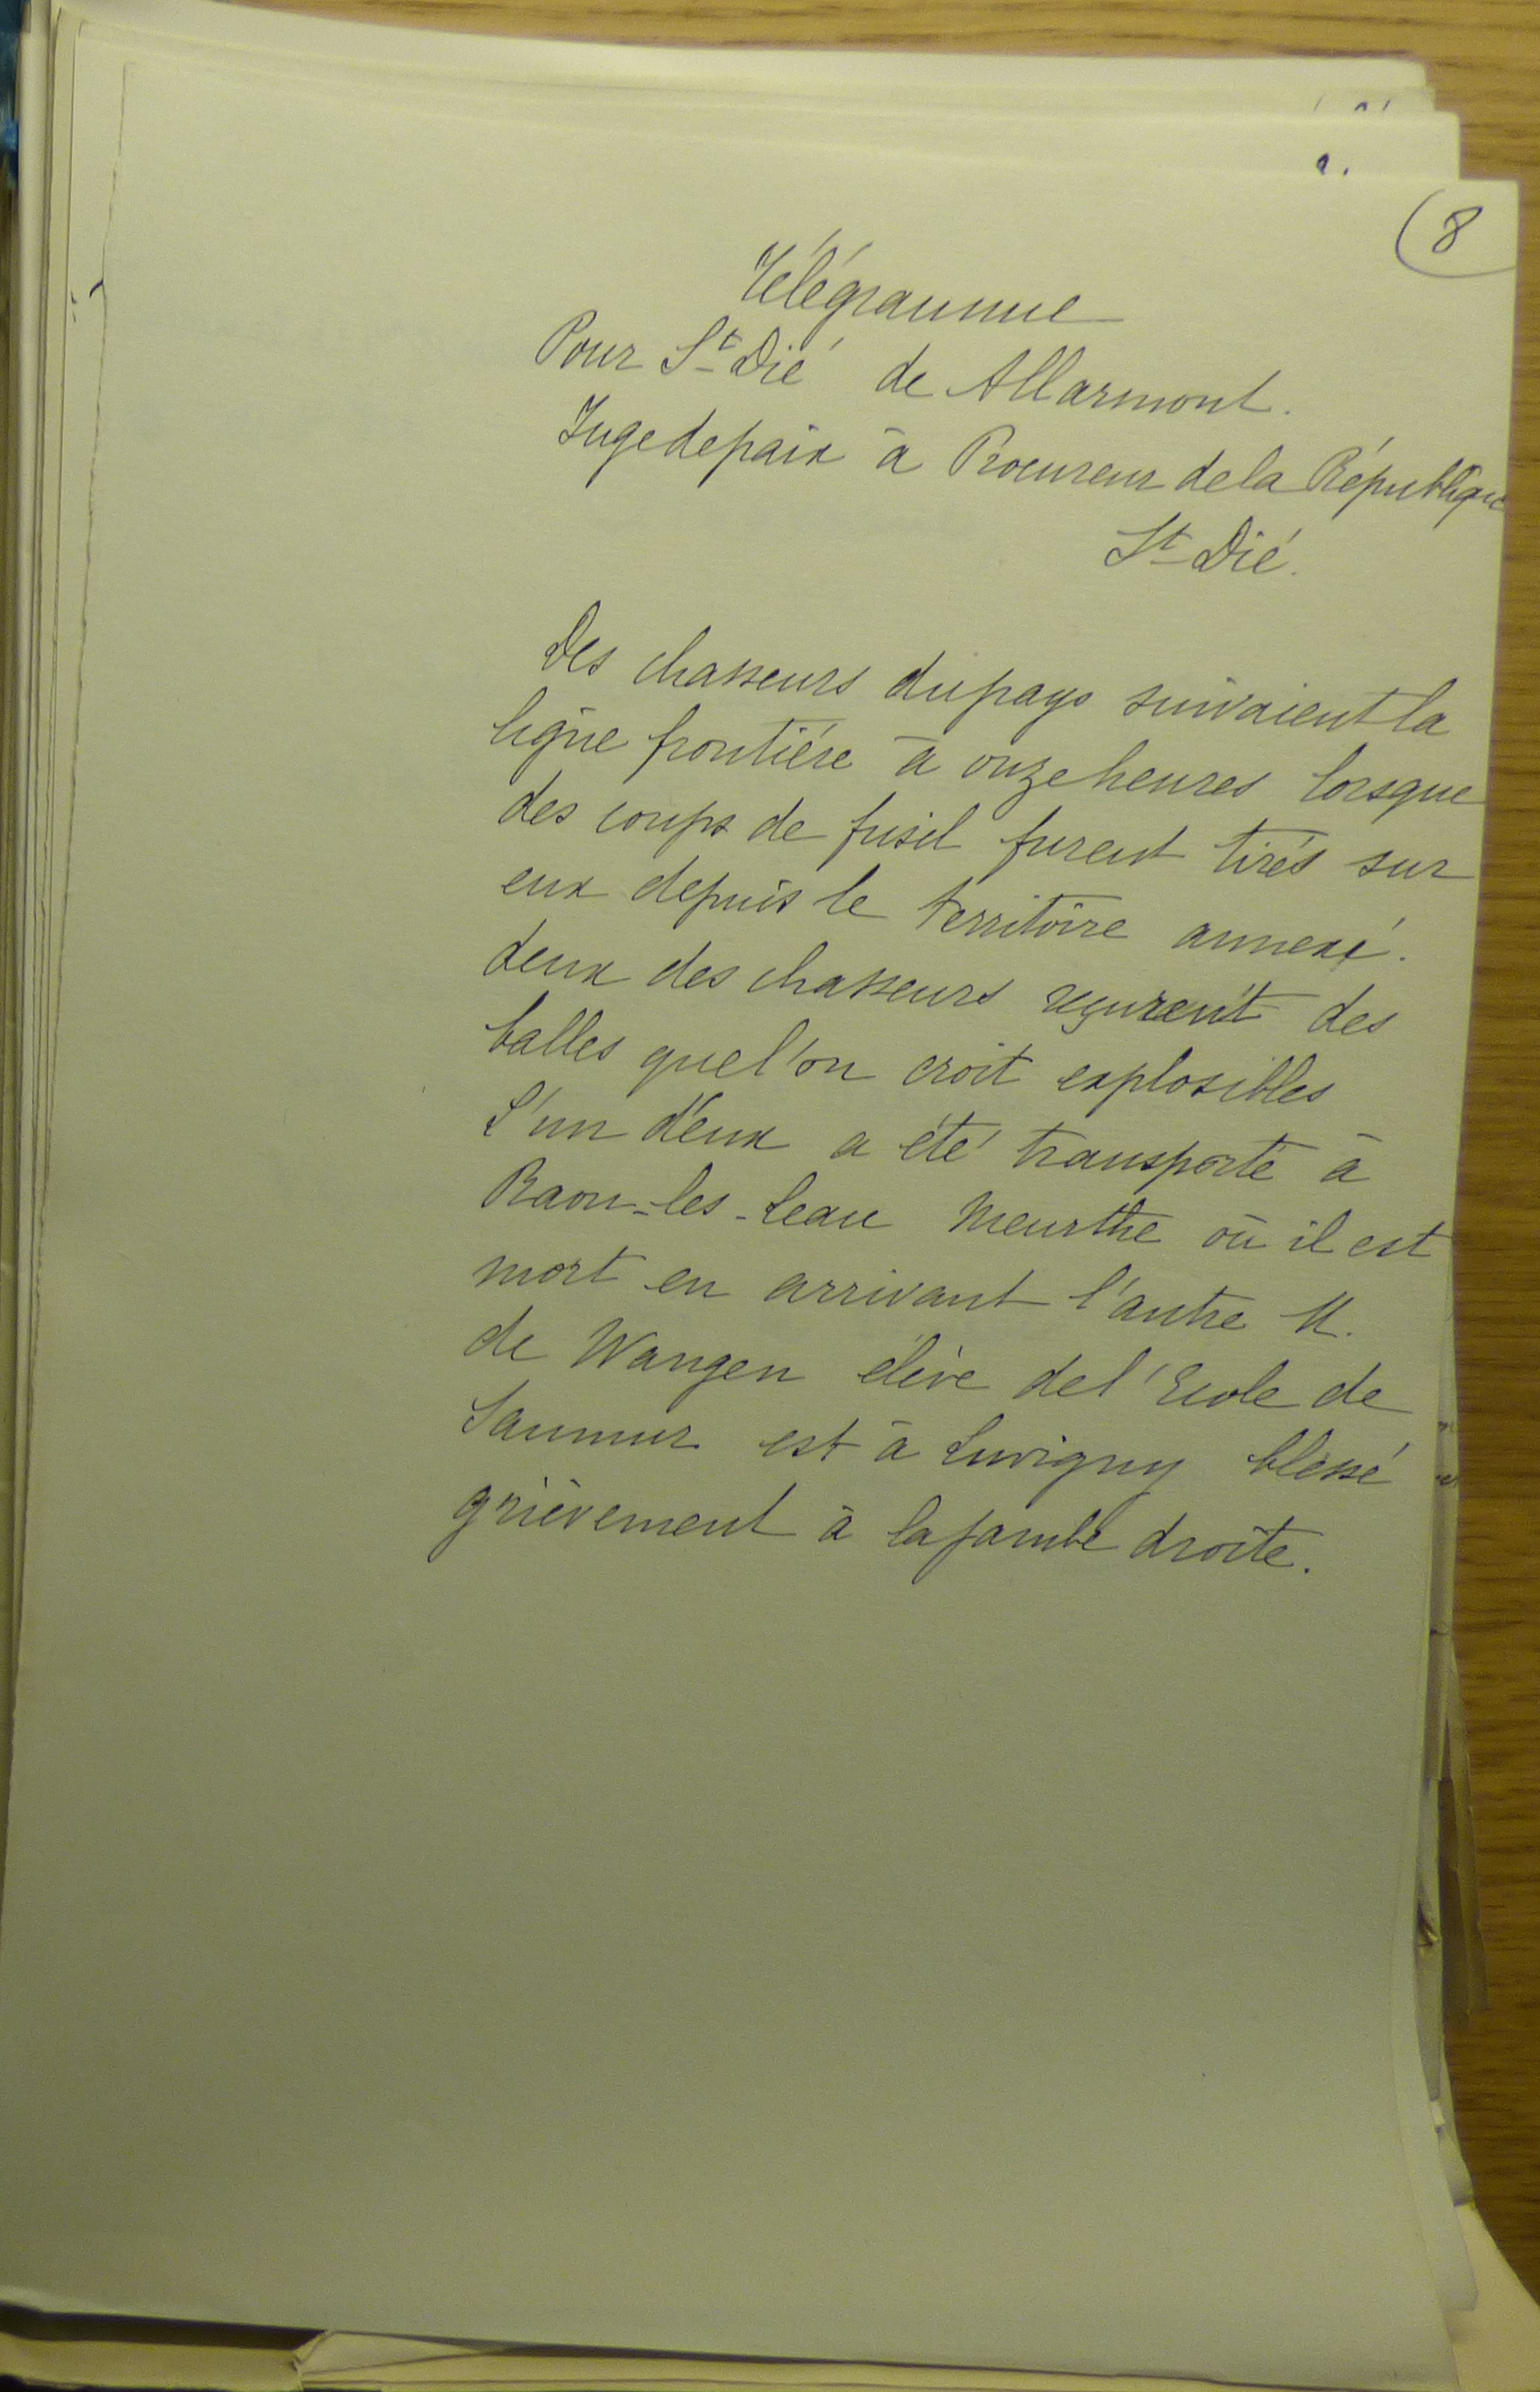 8
Télégramme
Pour St Dié de Allarmont.
Juge de paix à Procureur de la République
St Dié.
Des chasseurs du pays suivaient la
ligne frontière à onze heures lorsque
des coups de fusil furent tirés sur
eux depuis le territoire annexé.
deux des chasseurs reçurent des
balles que l'on croit explosibles
L'un d'eux a été transporté à
Raon-les-Leau Meurthe où il est
mort en arrivant l'autre M.
de Wangen élève de l'Ecole de
Saumur est à Luvigny blessé
grièvement à la jambe droite.